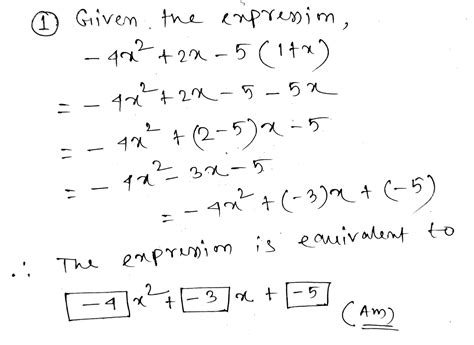 ① Given the expression,
- 4x² + 2x - 5 (1+x)
= - 4x² + 2x - 5 - 5x
= - 4x² + (2-5)x - 5
= - 4x² - 3x - 5
= - 4x² + (-3)x + (-5)
∴ The expression is equivalent to
-4 x² + -3 x + -5 (Ans)